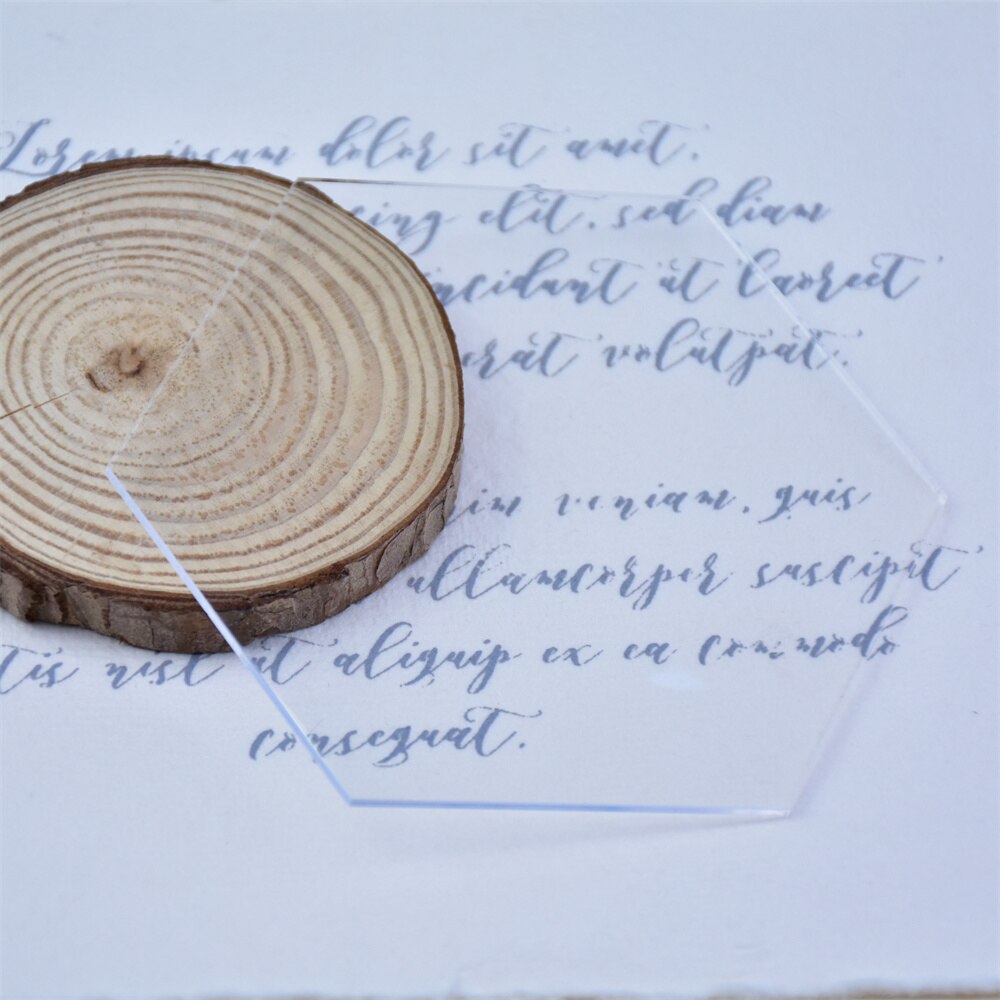 Lorem ipsum dolor sit amet,
cing elit, sed diam
incidunt ut laoreet
erat volutpat.
im veniam, quis
ullamcorper suscipit
tis nisl ut aliquip ex ea commodo
consequat.